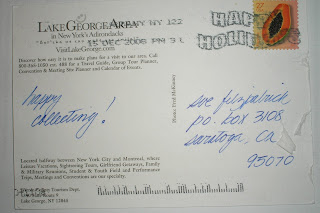 LAKE GEORGE AREA
in New York's Adirondacks
VisitLakeGeorge.com
NY 122
15 DEC 2006 PM 3 L
HAPPY
HOLIDAYS
Discover how easy it is to make plans for a visit to our area. Call
800-365-1050 ext. 488 for a Travel Guide, Group Tour Planner,
Convention & Meeting Site Planner and Calendar of Events.
happy
collecting!
sve fitzpatrick
p.o. box 3108
saratoga, ca
95070
Located halfway between New York City and Montreal, where
Leisure Vacations, Sightseeing Tours, Girlfriend Getaways, Family
& Military Reunions, Student & Youth Field and Performance
Trips, Meetings and Conventions are our specialty.
County Tourism Dept.
Lake George, NY 12845